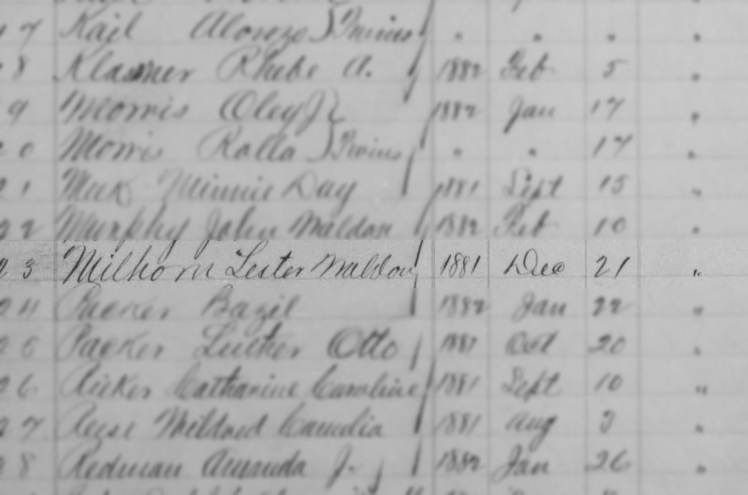 17 Kail Alonzo } Twins " " " "
18 Klasner Rhebe A. 1882 Feb 5 "
19 Morris Oley } 1882 Jan 17 "
20 Morris Rolla } Twins " " 17 "
21 Meek Minnie Day 1881 Sept 15 "
22 Murphy John Waldon 1882 Feb 10 "
23 Milhorn Lester Waldon 1881 Dec 21 "
24 Packer Bazil 1882 Jan 22 "
25 Packer Luther Otto 1881 Oct 20 "
26 Ricker Catharine Caroline 1881 Sept 10 "
27 Reese Mildred 1881 Aug 3 "
28 Redman Amanda J. 1882 Jan 26 "